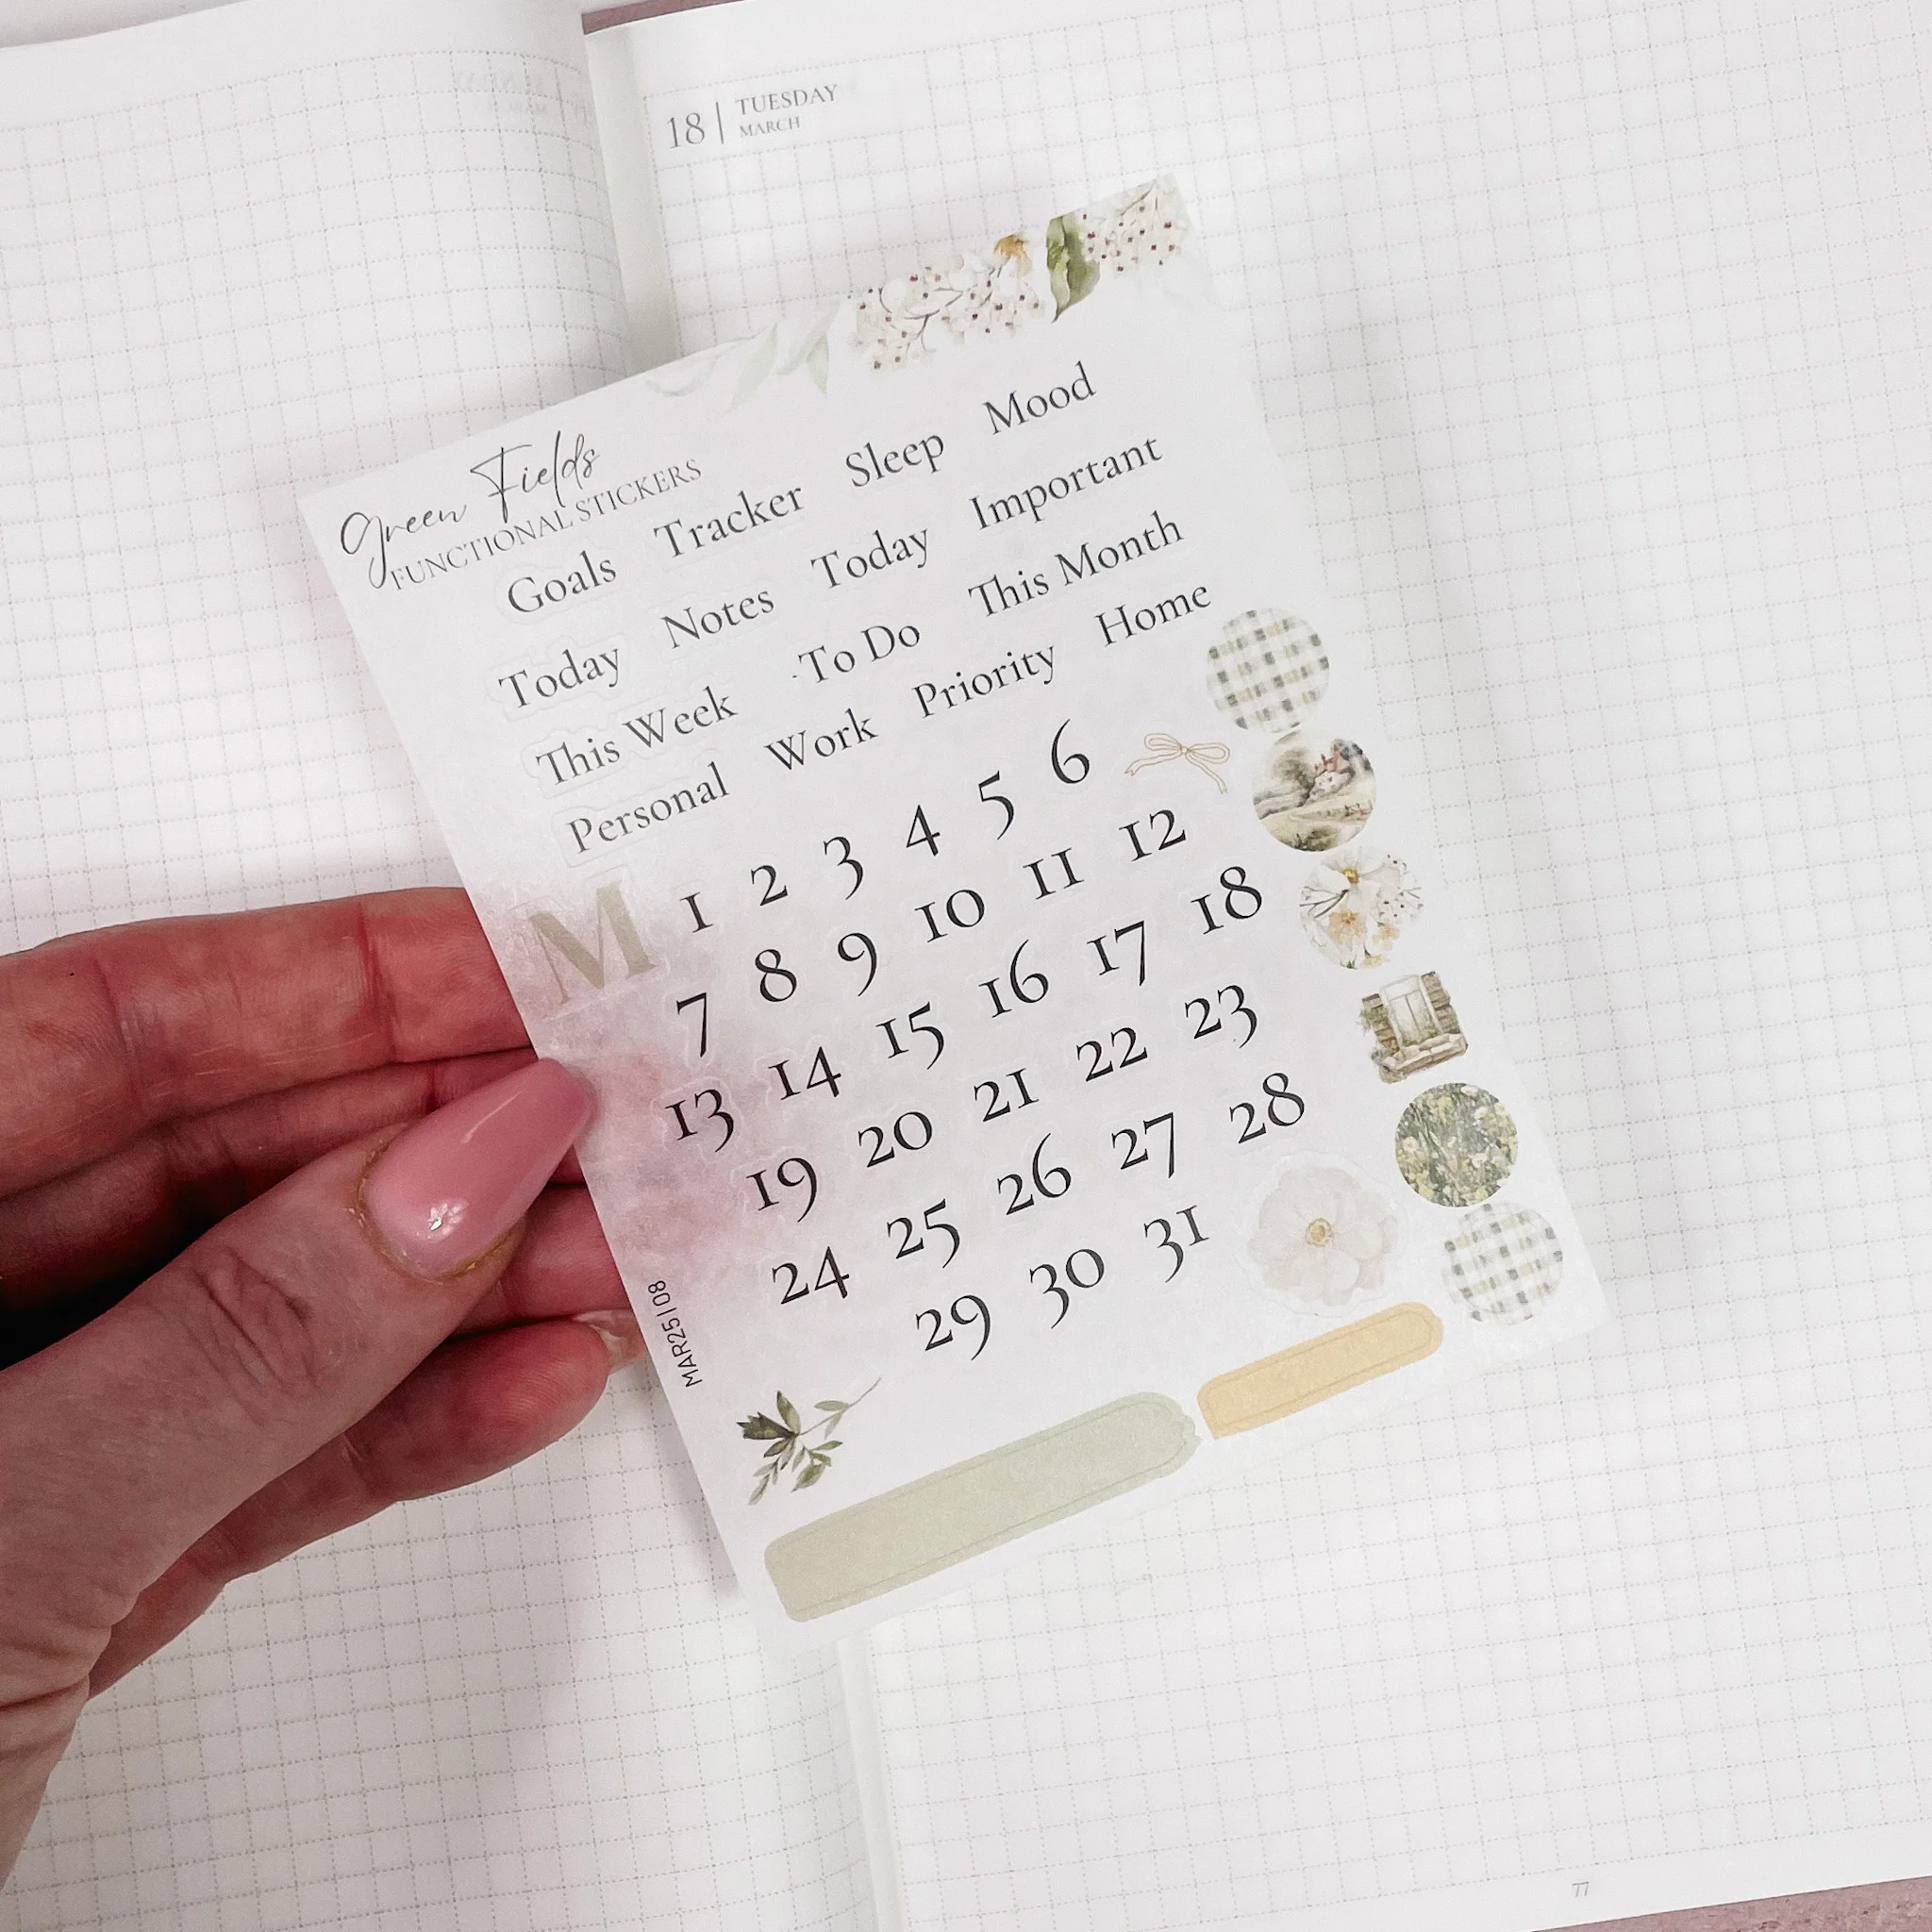 18 | TUESDAY
MARCH
Green Fields
FUNCTIONAL STICKERS
Goals Tracker Sleep Mood
Today Notes Today Important
This Week To Do This Month
Personal Work Priority Home
M 1 2 3 4 5 6
7 8 9 10 11 12
13 14 15 16 17 18
19 20 21 22 23
24 25 26 27 28
29 30 31
MAR25 | 08
77